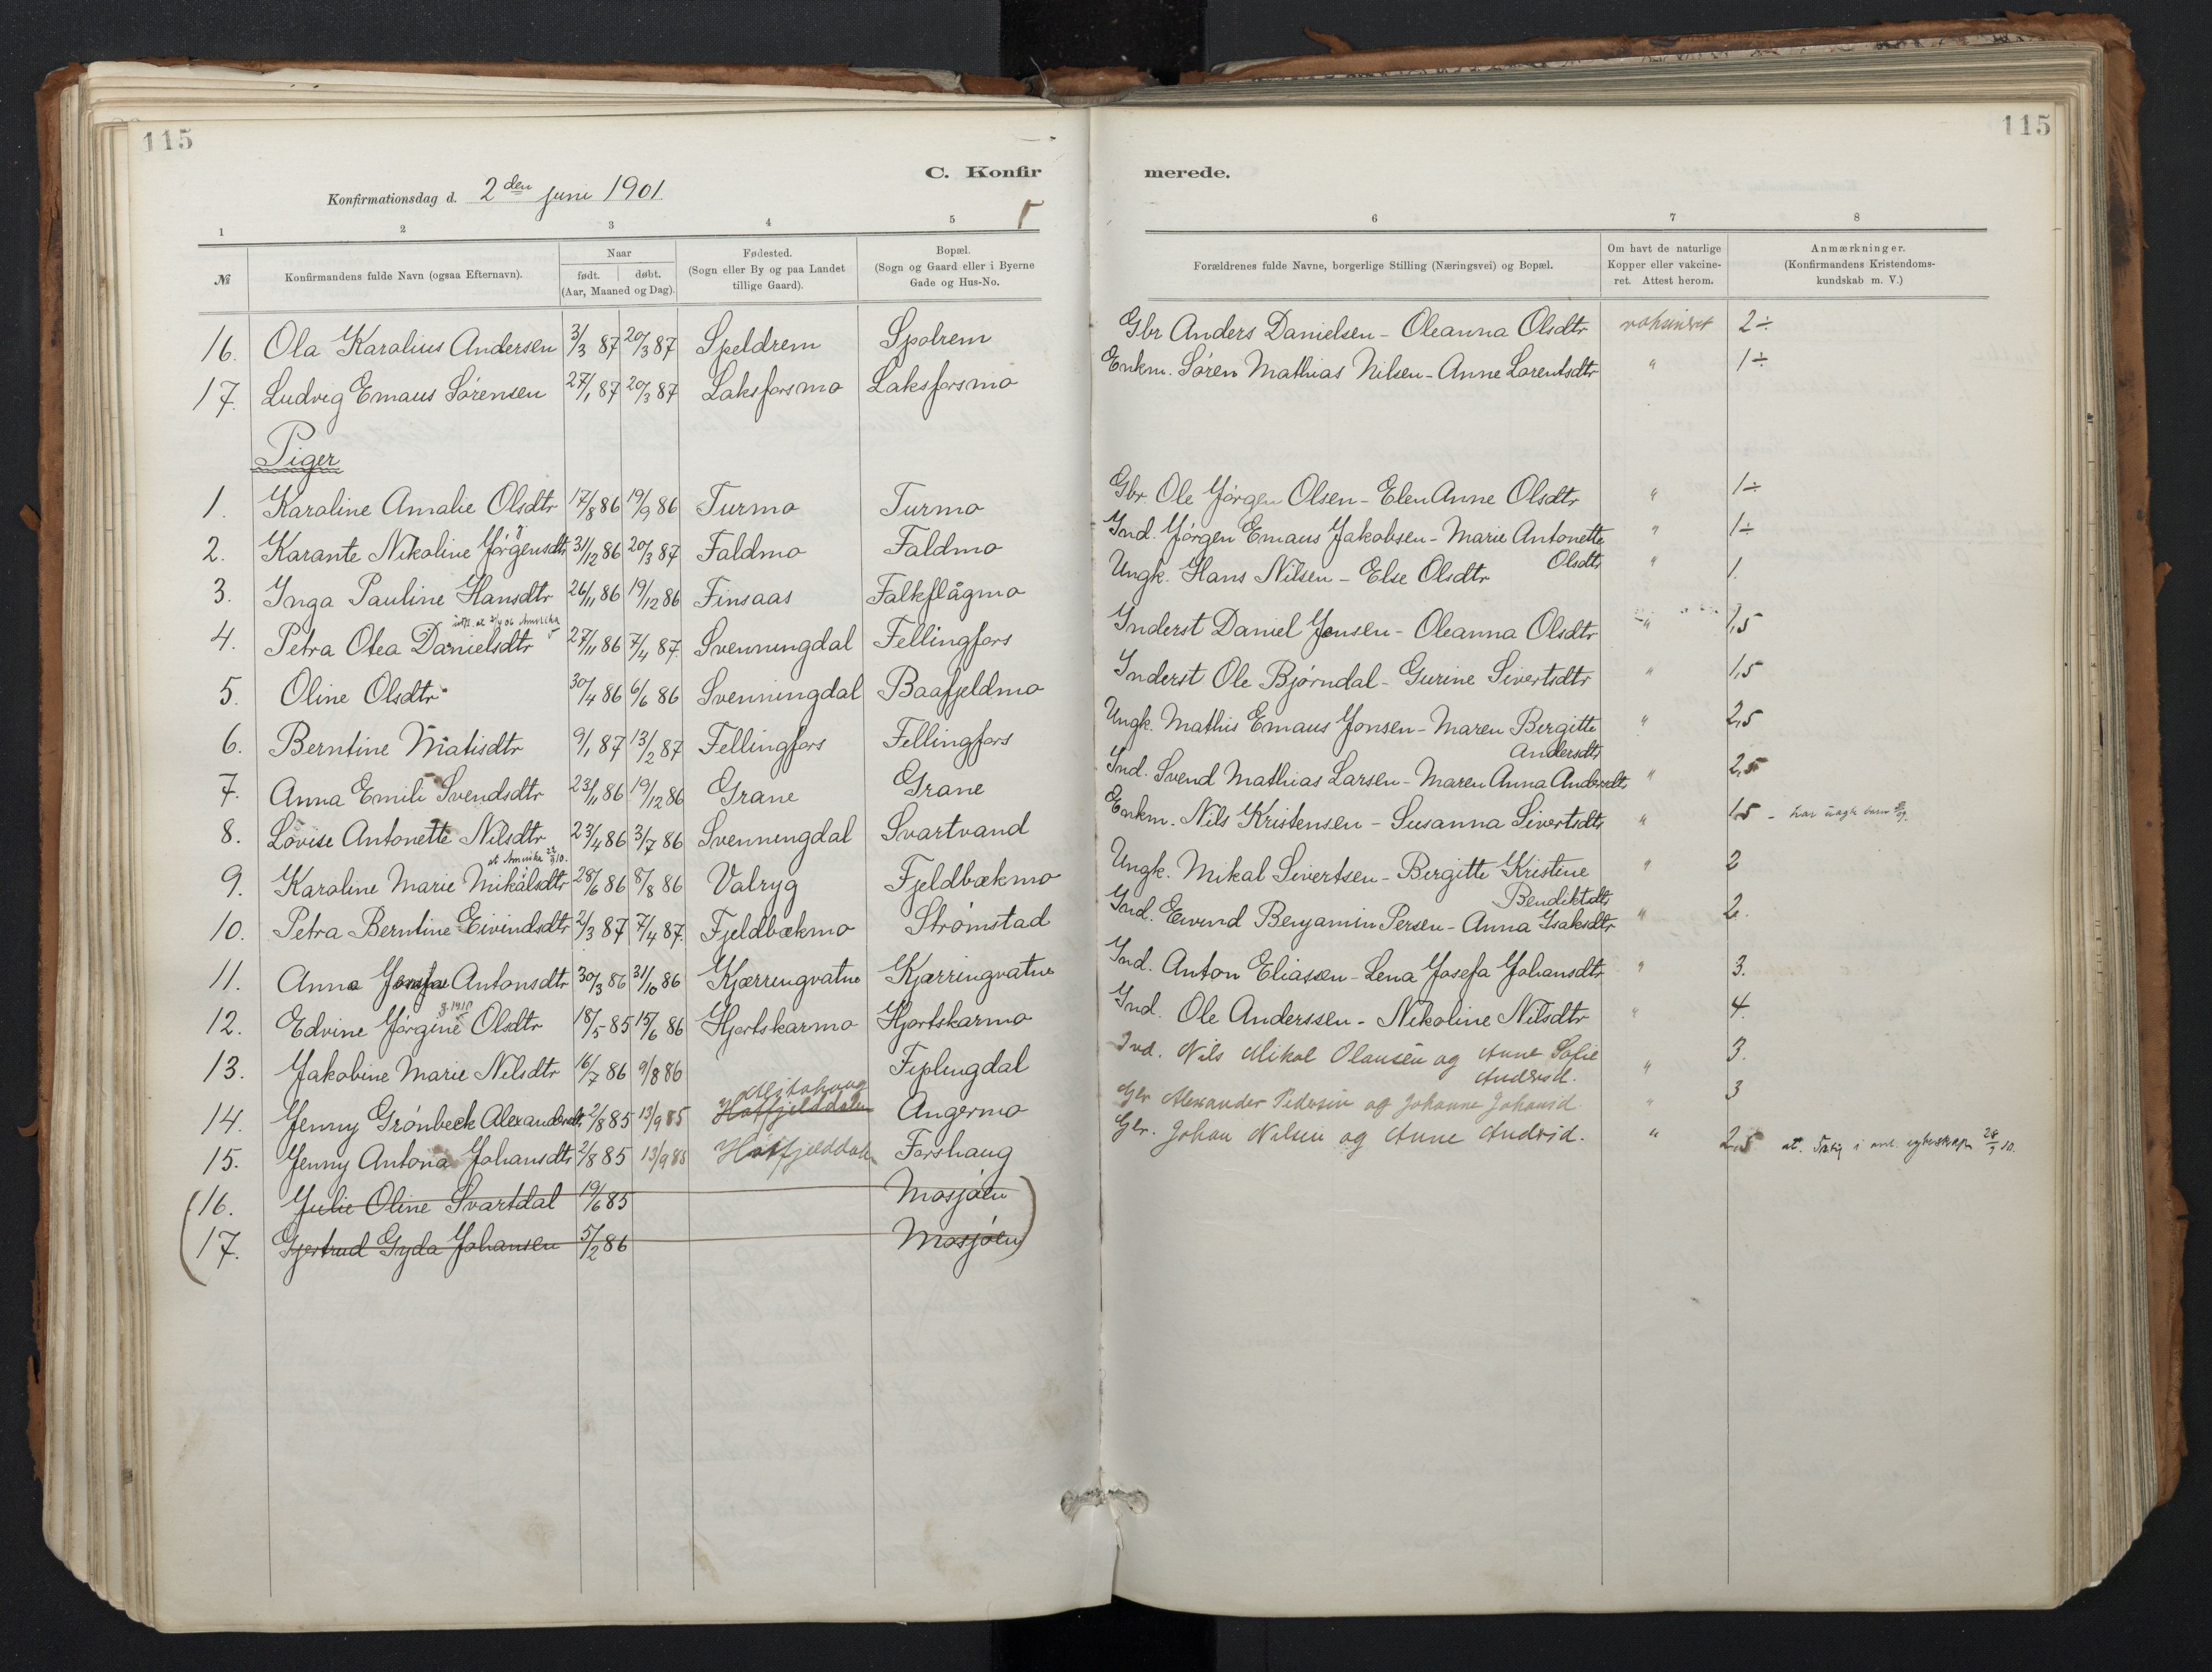 115
115
C. Konfir
merede.
Konfirmationsdag d. 2den juni 1901.
1 2 3 4 5 6 7 8
№ Konfirmandens fulde Navn (ogsaa Efternavn). Naar født. døbt. (Aar, Maaned og Dag). Fødested. (Sogn eller By og paa Landet tillige Gaard). Bopæl. (Sogn og Gaard eller i Byerne Gade og Hus-No. Forældrenes fulde Navne, borgerlige Stilling (Næringsvei) og Bopæl. Om havt de naturlige Kopper eller vakcineret. Attest herom. Anmærkninger. (Konfirmandens Kristendomskundskab m. V.)
16. Ola Karolius Andersen 3/3 87 20/3 87 Speldrem Spolrem Gbr Anders Danielsen - Oleanna Olsdtr vaksineret 2÷
17. Ludvig Emaus Sørensen 27/1 87 20/3 87 Laksforsmo Laksforsmo Enkm. Søren Mathias Nilsen - Anne Lorentsdtr " 1÷
Piger
1. Karoline Amalie Olsdtr 17/8 86 19/9 86 Turmo Turmo Gbr. Ole Jørgen Olsen - Elen Anne Olsdtr " 1÷
2. Karante Nikoline Jørgensdtr 31/12 86 20/3 87 Faldmo Faldmo Ind. Jørgen Emaus Jakobsen - Marie Antonette Olsdtr " 1÷
3. Inga Pauline Hansdtr 26/11 86 19/12 86 Finsaas Falkflågmo Ungk. Hans Nilsen - Else Olsdtr " 1.
Amerika
4. Petra Olea Danielsdtr 27/11 86 7/4 87. Svenningdal Fellingfors Inderst Daniel Jonsen - Oleanna Olsdtr " 1,5
5. Oline Olsdtr 30/4 86 6/6 86 Svenningdal Baafjeldmo Inderst Ole Bjørndal - Gurine Sivertsdtr " 1,5
6. Berntine Matisdtr 9/1 87 13/2 87 Fellingfors Fellingfors Ungk. Mathis Emaus Jonsen - Maren Bergitte Andersdtr " 2,5
7. Anna Emili Svendsdtr 23/11 86 19/12 86 Grane Grane Ind. Svend Mathias Larsen - Maren Anna Andersdtr " 2,5
8. Lovise Antonette Nilsdtr 23/4 86 3/7 86 Svenningdal Svartvand Enkm. Nils Kristensen - Susanna Sivertsdtr " 1,5 - har uægte barn
at Amerika 22/9 10.
9. Karoline Marie Mikalsdtr 28/6 86 8/8 86 Valryg Fjeldbækmo Ungk. Mikal Sivertsen - Bergitte Kristine Bendiktdtr " 2
10. Petra Berntine Eivindsdtr 2/3 87 7/4 87. Fjeldbækmo Strømstad Ind. Eivind Benjamin Persen - Anna Isaksdtr " 2.
11. Anna Antonsdtr 30/3 86 31/10 86 Kjærringvatne Kjærringvatne Ind. Anton Eliassen - Lena Josefa Johansdtr " 3.
g. 1910
12. Edvine Jørgine Olsdtr 18/5 85 15/6 86 Hjortskarmo Hjortskarmo Ind. Ole Anderssen - Nikoline Nilsdtr " 4.
13. Jakobine Marie Nilsdtr 16/7 86 9/8 86 Fiplingdal Ind. Nils Mikal Olausen og Anne Sofie Andersd. " 3.
14. Jenny Grønbeck Alexandersdtr 2/8 85 13/9 85 Hatfjelddalen Angermo Gbr Alexander Pedersen og Johanne Johansd. " 3
15. Jenny Antona Johansdtr 2/8 85 13/9 85 Hatfjelddalen Forshaug Gbr. Johan Nilsen og Anne Andrsd. " 2,5 at. i anl. egteskap 28/9 10.
(16. Julie Oline Svartdal 19/6 85 Mosjøen)
(17. Gjertrud Gyda Johansen 5/2 86 Mosjøen)